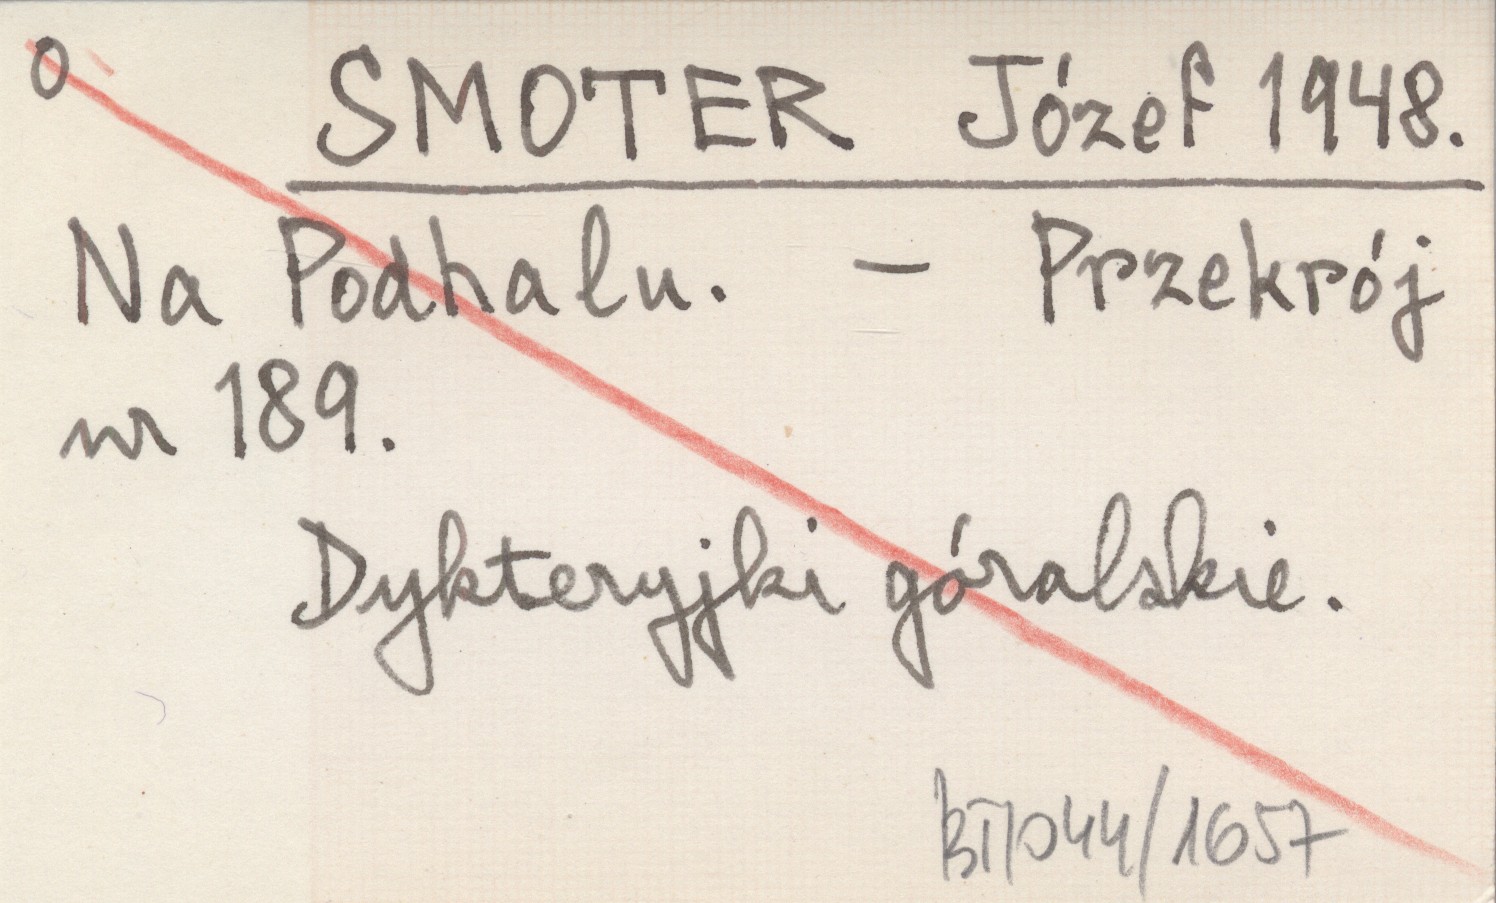 0 SMOTER Józef 1948.
Na Podhalu. – Przekrój
nr 189.
Dykteryjki góralskie.
BI/044/1657